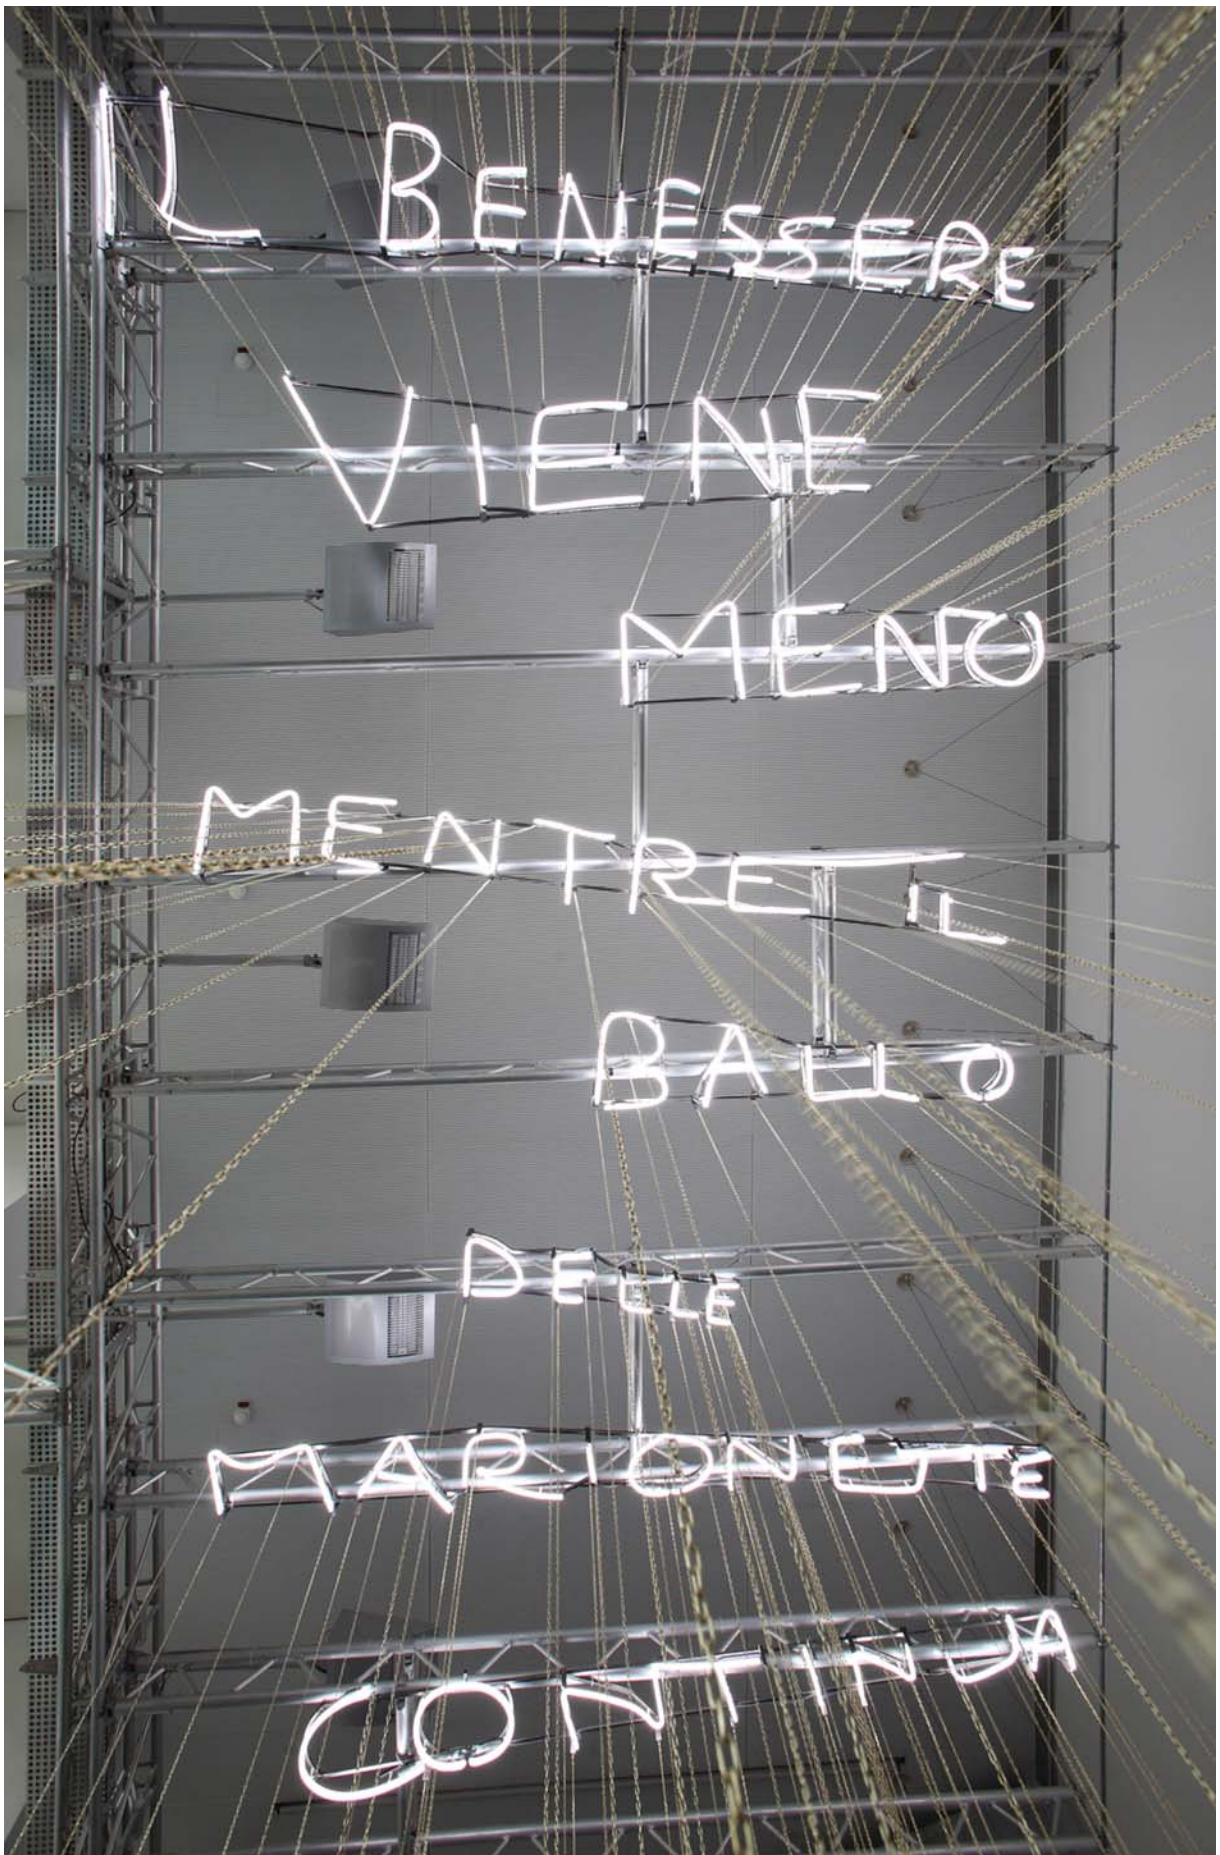 IL BENESSERE
VIENE
MENO
MENTRE IL
BALLO
DELLE
MARIONETTE
CONTINUA